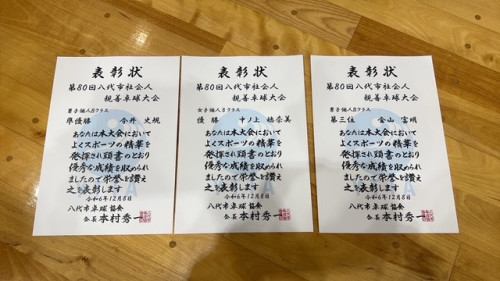 表彰状
第80回八代市社会人
親善卓球大会
男子個人Bクラス
準優勝 今井 史規
あなたは本大会において
よくスポーツの精華を
発揮され頭書のとおり
優秀な成績を収められ
ましたので栄誉を讃え
之を表彰します
令和6年12月8日
八代市卓球協会
会長 本村秀一
表彰状
第80回八代市社会人
親善卓球大会
女子個人Bクラス
優勝 中ノ上 穂奈美
あなたは本大会において
よくスポーツの精華を
発揮され頭書のとおり
優秀な成績を収められ
ましたので栄誉を讃え
之を表彰します
令和6年12月8日
八代市卓球協会
会長 本村秀一
表彰状
第80回八代市社会人
親善卓球大会
男子個人Bクラス
第三位 金山 富明
あなたは本大会において
よくスポーツの精華を
発揮され頭書のとおり
優秀な成績を収められ
ましたので栄誉を讃え
之を表彰します
令和6年12月8日
八代市卓球協会
会長 本村秀一